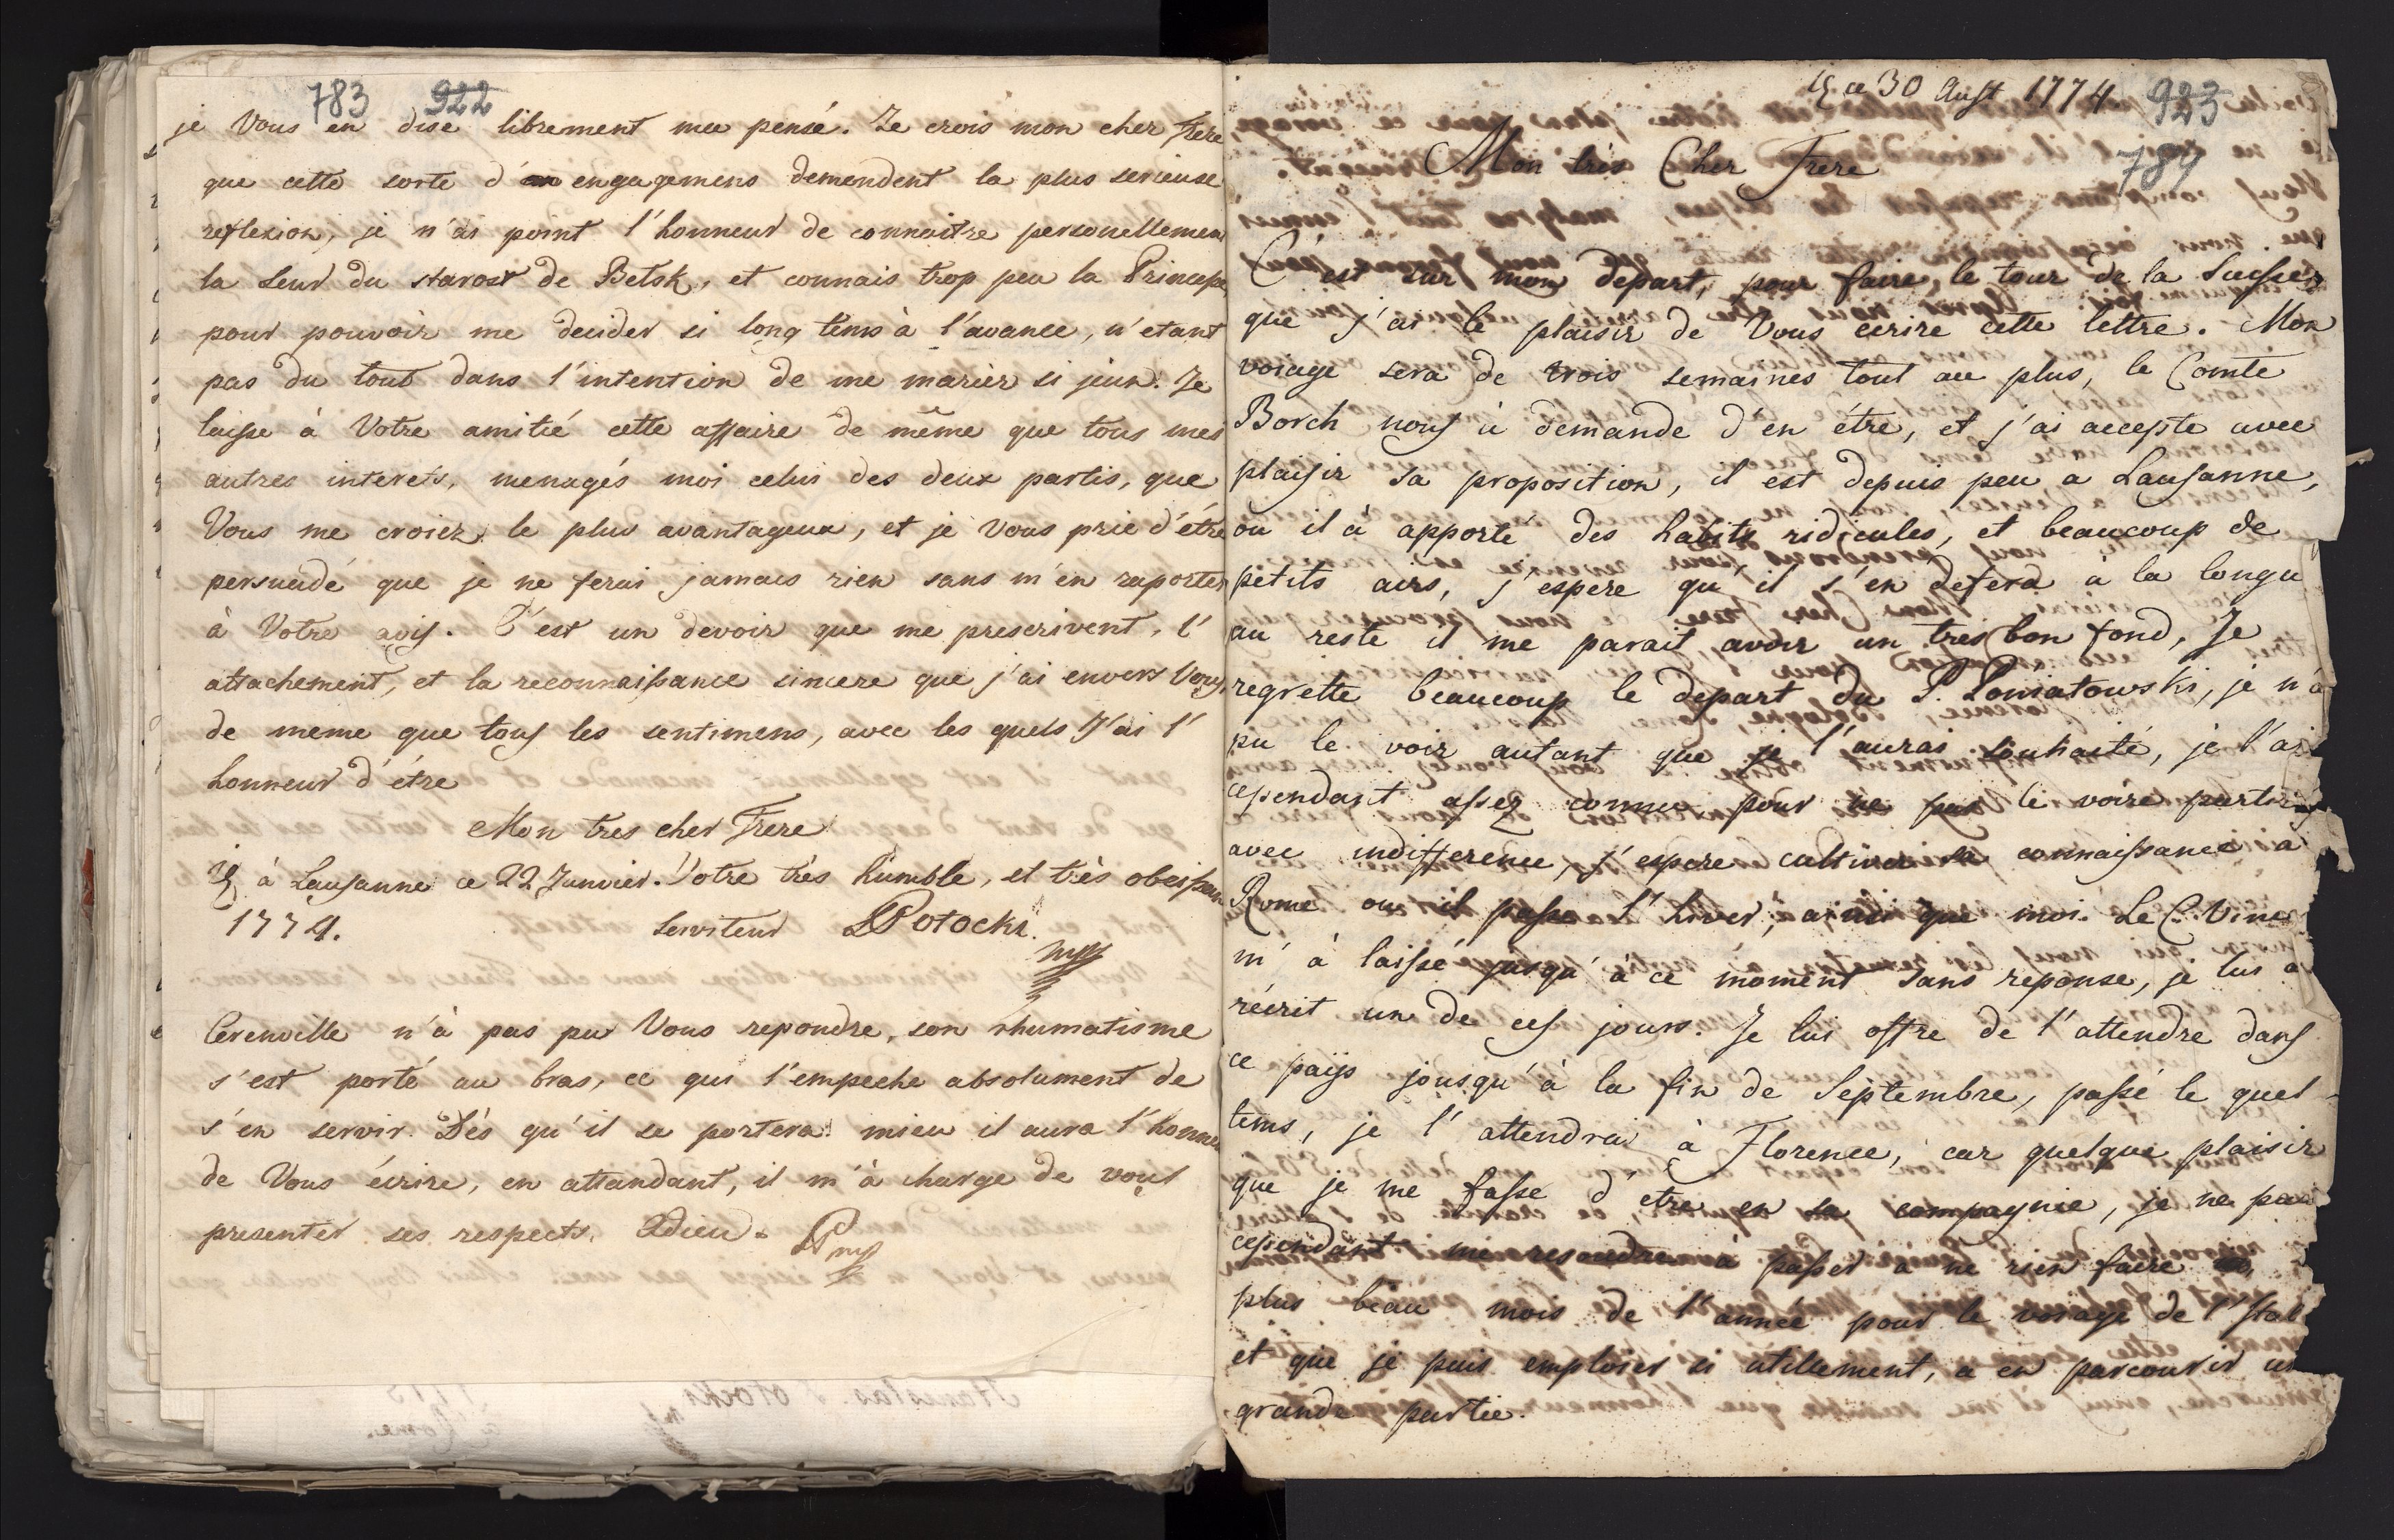 783 922
je Vous en dise librement ma pensé. Je crois mon cher Frere
que cette sorte d' engagemens demendent la plus serieuse
reflexion, je n'ai point l'honneur de connoitre personellement
la seur du starost de Betsk, et connais trop peu la Princesse
pour pouvoir me decider si long tems à l'avance, n'etant
pas du tout dans l'intention de me marier si jeun. Je
laisse à Votre amitié cette affaire de même que tous mes
autres interets, menagés moi celui des deux partis, que
Vous me croiez le plus avantageux, et je Vous prie d'être
persuadé que je ne ferai jamais rien sans m'en raporter
à Votre avis. C'est un devoir que me prescrivent, l'
attachement, et la reconnaissance sincere que j'ai envers Vous,
de meme que tous les sentimens, avec les quels J'ai l'
honneur d'étre
Mon tres cher Frere
à Lausanne ce 22 Janvier. Votre très humble, et très obeissant
1774. Serviteur Potocki
n'à pas pu Vous repondre, son rhumatisme
s'est porté au bras, ce qui l'empeche absolument de
s'en servir. Dés qu'il se portera mieu il aura l'honneur
de Vous écrire, en attandant, il m'à charge de vous
presenter ses respects. Adieu.
ce 30 Aust 1774 923
784
Mon très Cher Frere
C'est sur mon depart, pour faire, le tour de la Suisse,
que j'ai le plaisir de Vous ecrire cette lettre. Mon
voiage sera de trois semaines tout au plus, le Comte
Borch nous à demande d'en étre, et j'ai accepte avec
plaisir sa proposition, il est depuis peu a Lausanne,
ou il à apporté des habits ridicules, et beaucoup de
petits airs, j'espere qu'il s'en defera à la longu
au reste il me parait avoir un tres bon fond, Je
regrette beaucoup le depart du P. Poniatowski, je n'a
pu le voir autant que je l'aurai souhaité, je l'ai
cependant assez connu pour ne pas le voire partir
avec indifference, j'espere cultiver sa connaissance a
Rome ou il passe l'hiver, ainsi que moi. Le C. Vine
m'à laissé jusqu'à ce moment sans reponse, je lui a
récrit un de ces jours. Je lui offre de l'attendre dans
ce païs jousqu'à la fin de Septembre, passé le quel
tems, je l'attendrai à Florence, car quelque plaisir
que je me fasse d'etre en sa compagnie, je ne puis
cependant me resoudre à passer a ne rien faire
plus beau mois de l'année pour le voiage de l'Itali
et que je puis emploier si utilement, a en parcourir un
grande partie.